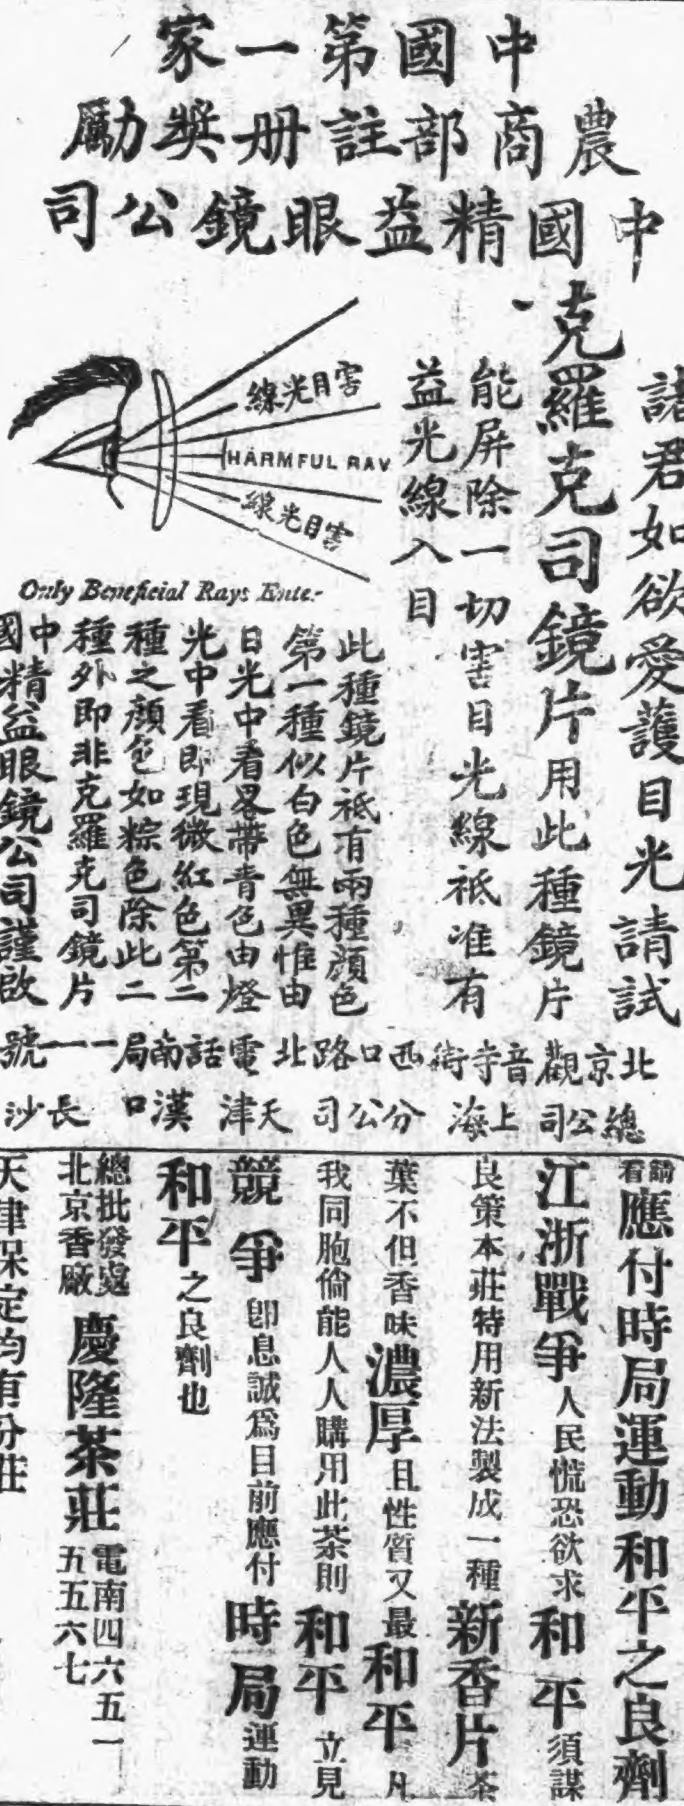 中國第一家
農商部註册奬勵
中國精益眼鏡公司
諸君如欲愛護目光請試
克羅克司鏡片用此種鏡片
能屏除一切害目光線祇准有
益光線入目
害目光線
HARMFUL RAY
害目光線
Only Beneficial Rays Enter
此種鏡片祇有兩種顏色
第一種似白色無異惟由
日光中看畧帶青色由燈
光中看即現微紅色第二
種之顏色如粽色除此二
種外即非克羅克司鏡片
中國精益眼鏡公司謹啟
北京觀音寺街西口路北電話南局一一號
總公司上海分公司天津漢口長沙
請看應付時局運動和平之良劑
江浙戰爭人民慌恐欲求和平須謀
良策本莊特用新法製成一種新香片茶
葉不但香味濃厚且性質又最和平凡
我同胞倘能人人購用此茶則和平立見
競爭卽息誠爲目前應付時局運動
和平之良劑也
總批發處北京香廠慶隆茶莊電南四六五一五五六七
天津保定均有分莊